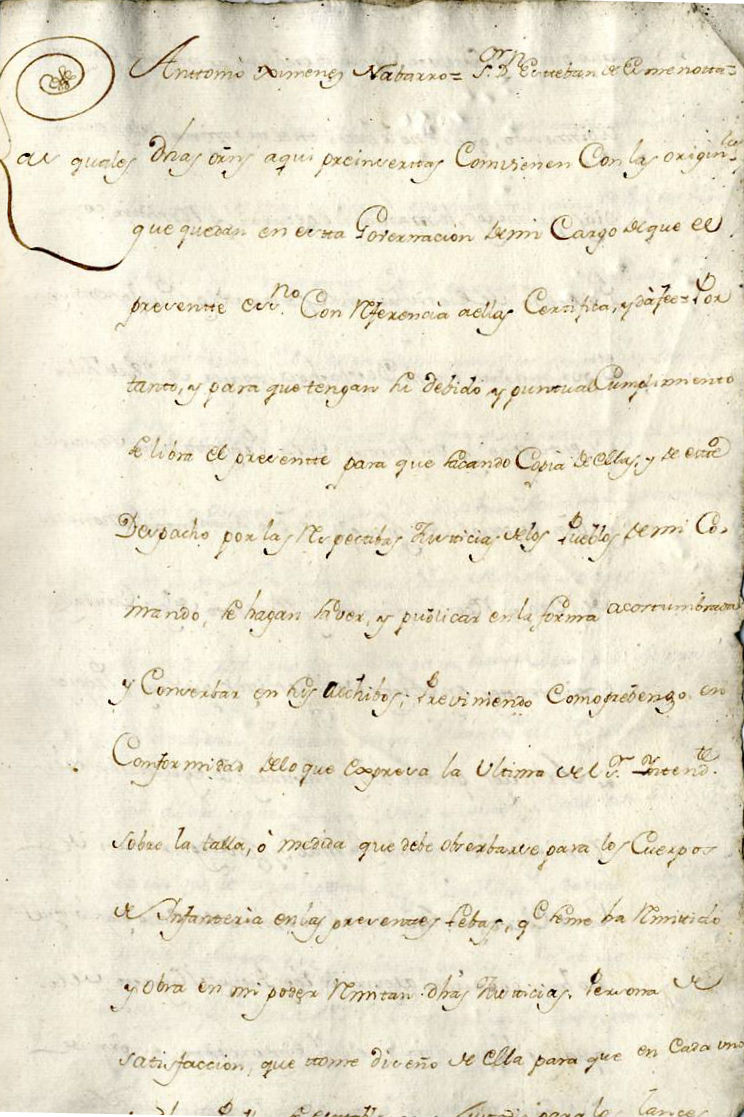 Anttonio Ximenez Nabarro = Sr. Dn. Estteban de Amenotta =
as quales dhas orns aqui preinserttas Combienen Con las originles
que quedan en estta Governacion de mi Cargo de que el
presentte essno. Con Referencia a ellas Certifica, y da fee = Por
tanto, y para que tengan su debido y puntual Cumplimiento
se libra el presentte para que sacando Copia de ellas, y de estte
Despacho por las Respectibas Justicias de los Pueblos de mi Co-
mando, se hagan saver, y publicar en la forma acostumbrada
y Conserbar en sus Archibos; Previniendo Como prebengo en
Conformidad de lo que expresa la Ultima del Sr. Yntendte.
sobre la talla, ò medida que debe obserbarse para los Cuerpos
de Infanteria en las presenttes Lebas, qe. se me ha Remitido
y obra en mi poder Remitan dhas Justicias, Persona de
satisfaccion, que ttome diseño de ella para que en Cada uno
para los lances